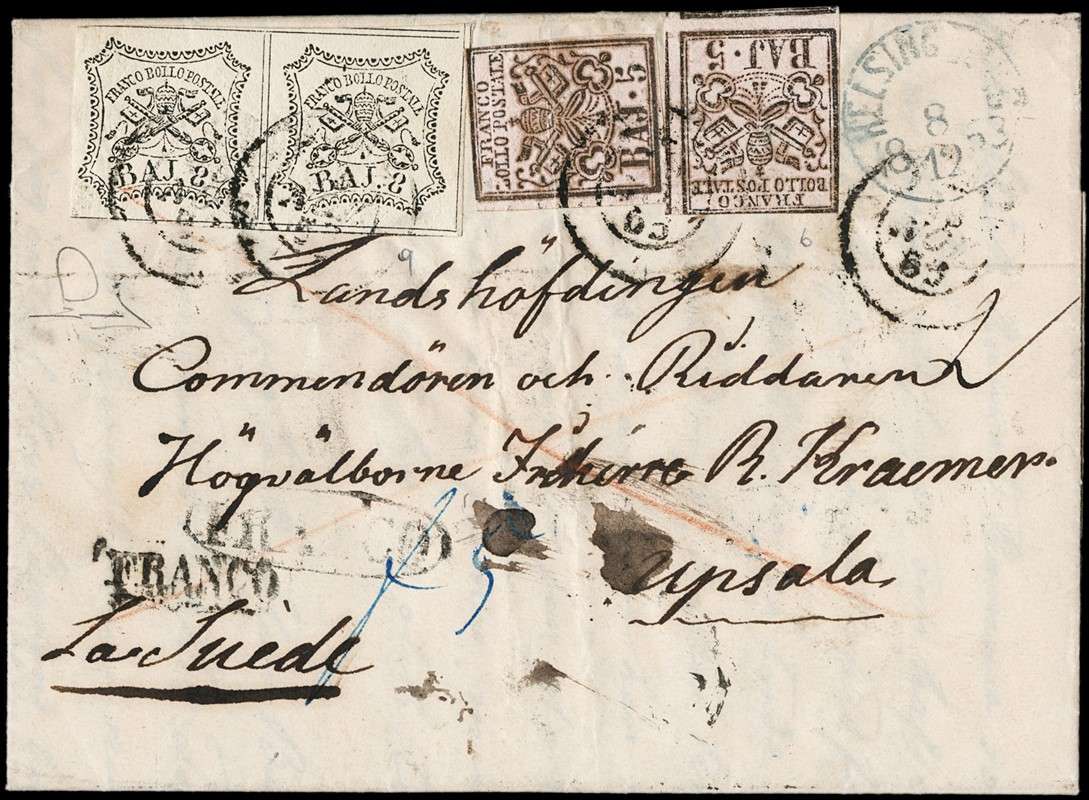 FRANCO BOLLO POSTALE
BAJ. 8
FRANCO BOLLO POSTALE
BAJ. 8
FRANCO
BOLLO POSTALE
BAJ. 5
FRANCO
BOLLO POSTALE
BAJ. 5
HELSING
8
12
63
9
6
Landshöfdingen
Commendören och Riddaren
Högvälborne R. Kraemer.
Upsala
FRANCO
La Suède